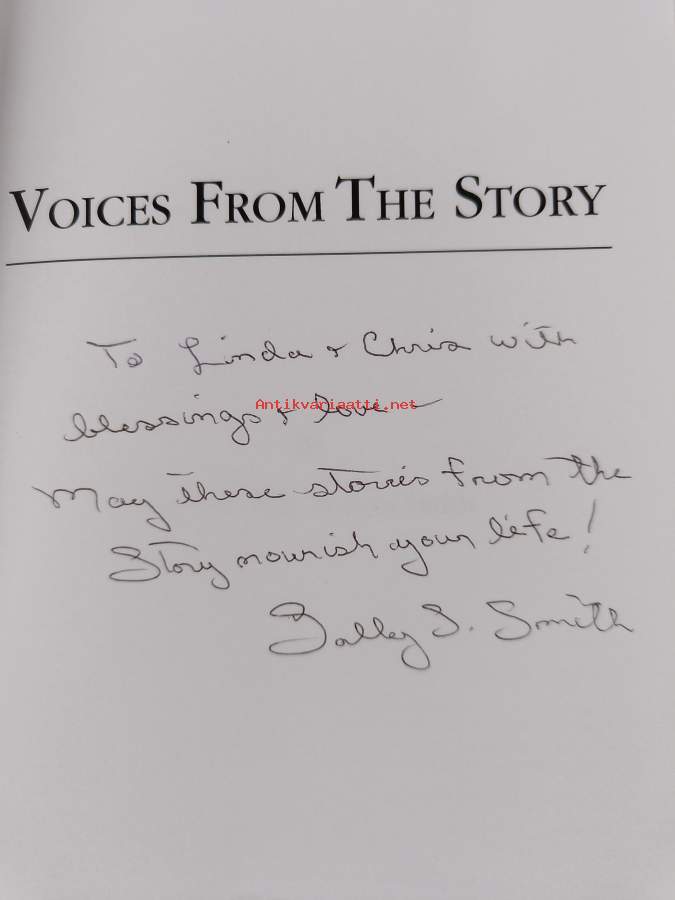 VOICES FROM THE STORY
To Linda & Chris with
Antikvariaatti.net
blessings & love
May these stories from the
Story nourish your life!
Sally S. Smith